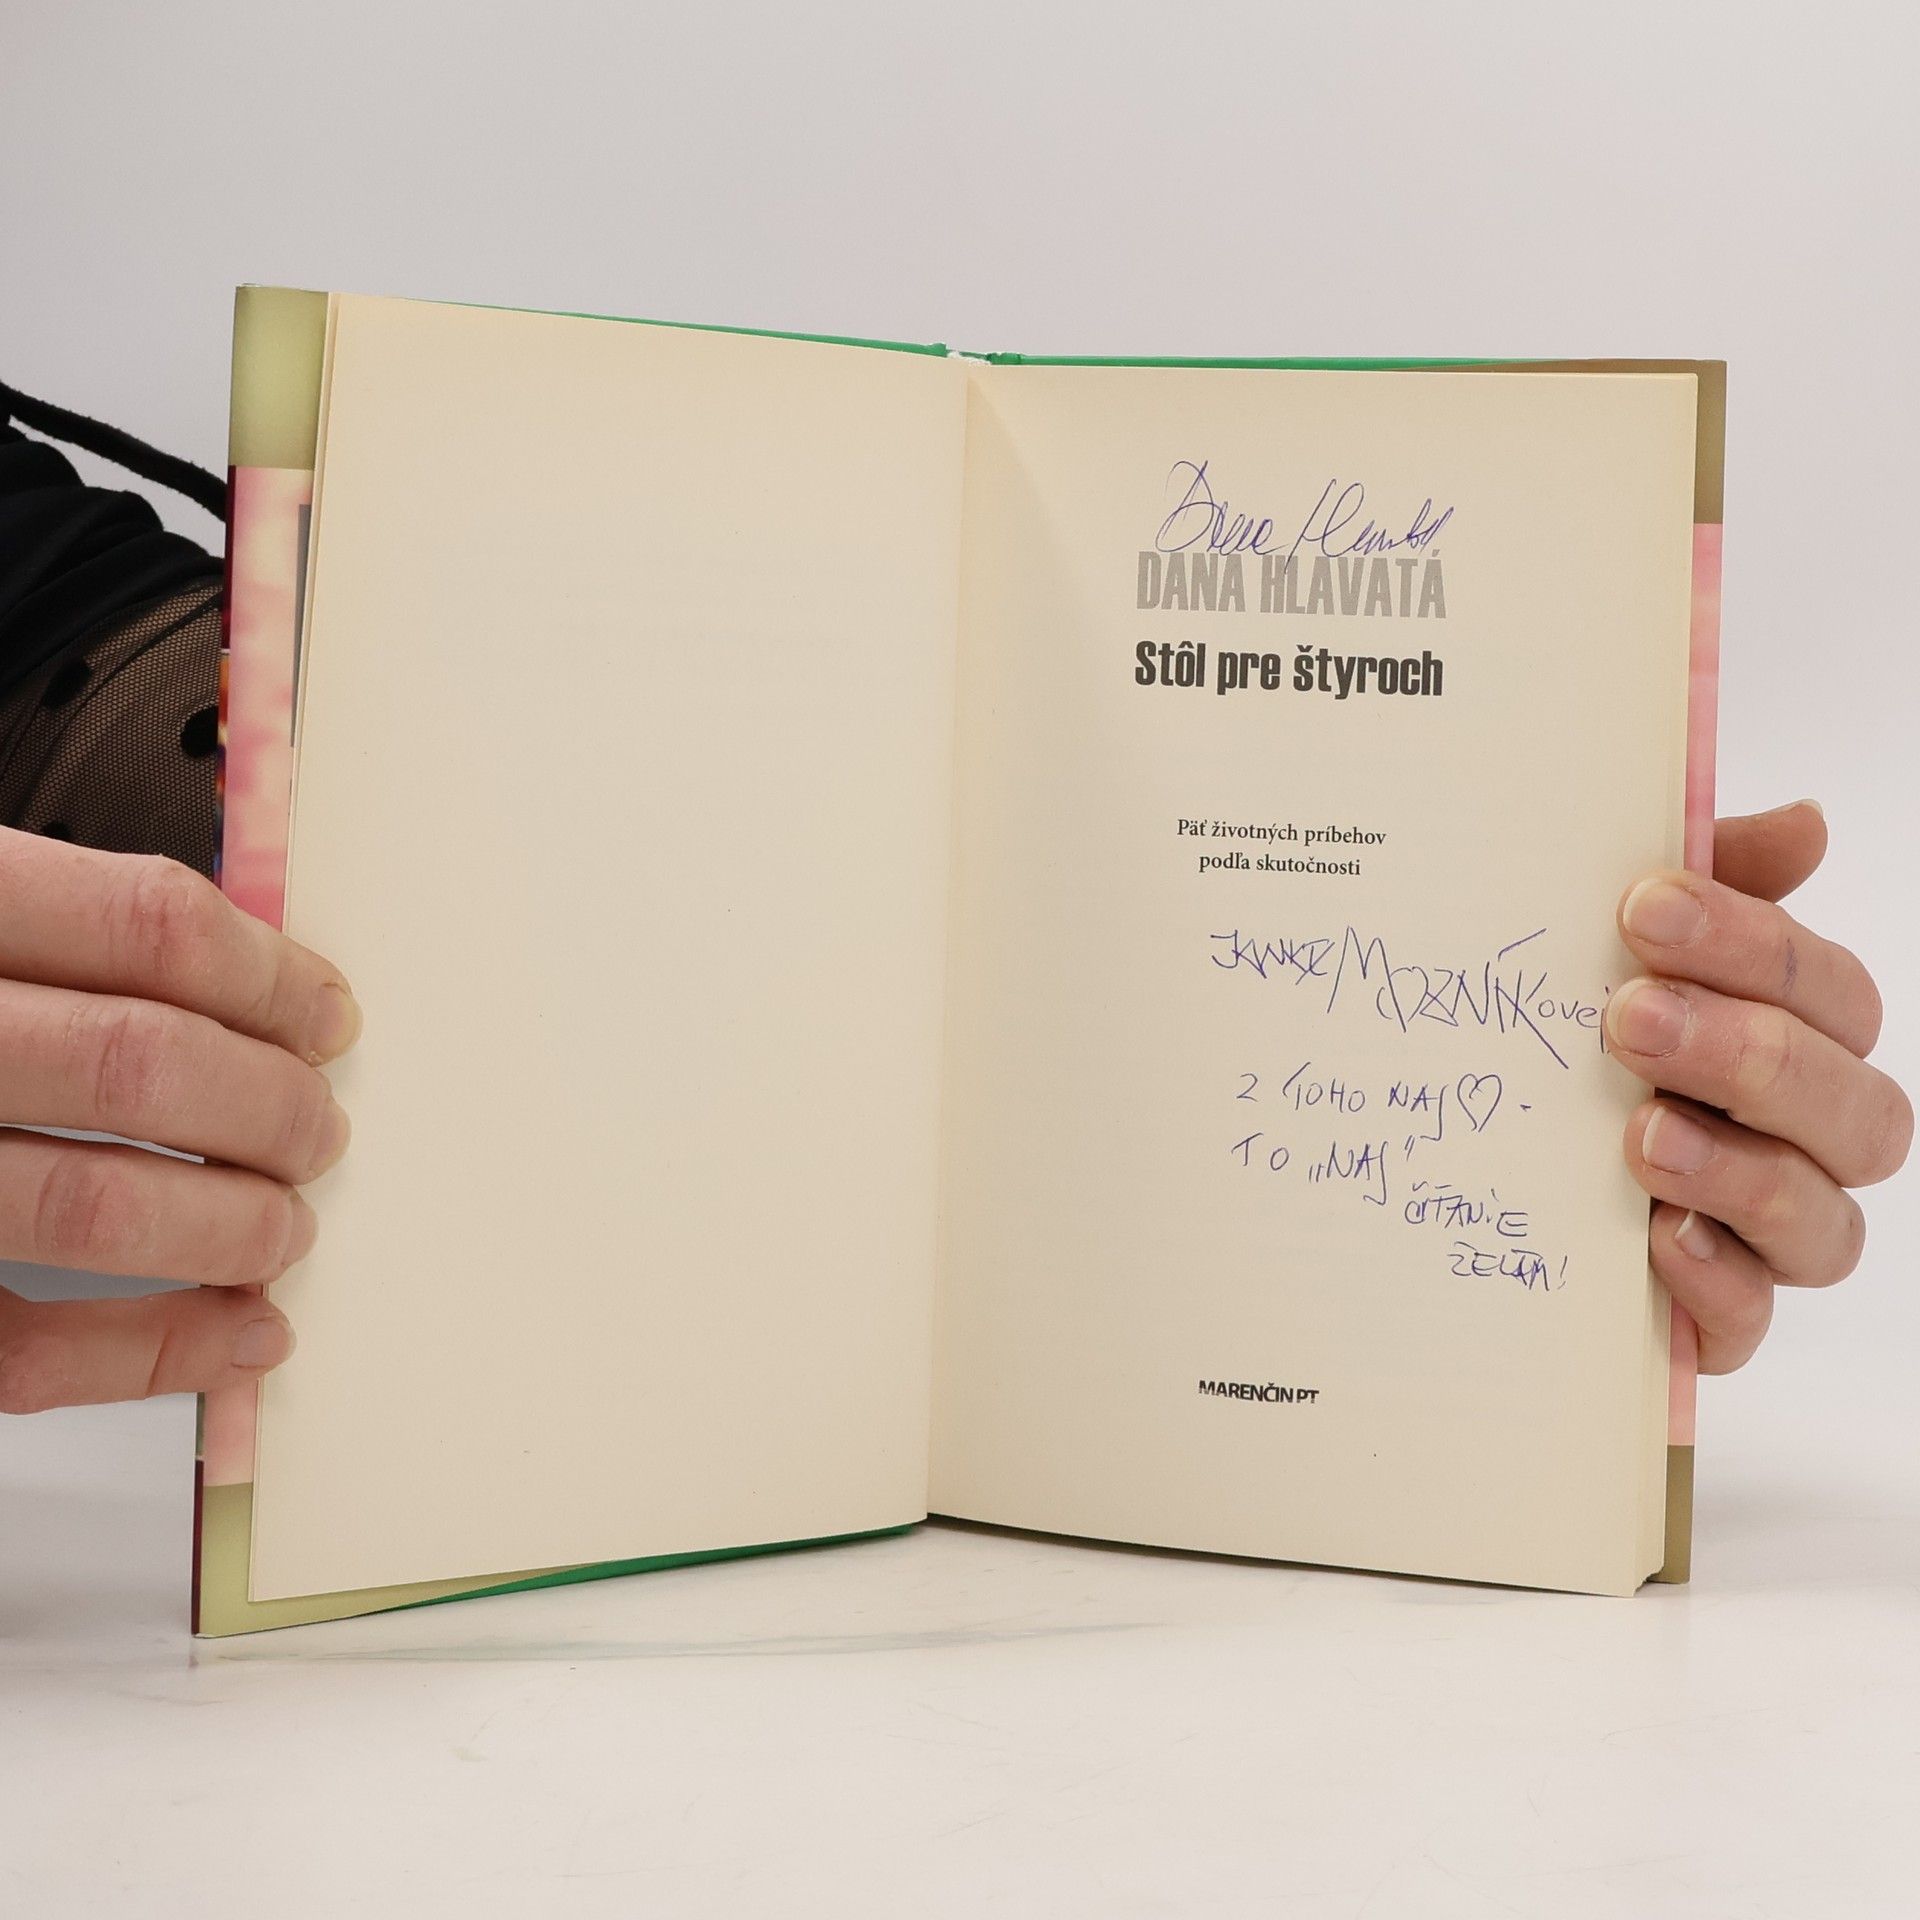 Dana Hlavatá
DANA HLAVATÁ
Stôl pre štyroch
Päť životných príbehov
podľa skutočnosti
JANKE MOZNÍKovej
Z TOHO NAJ♡ -
TO „NAJ"
ČÍTANIE
ŽELÁM!
MARENČIN PT